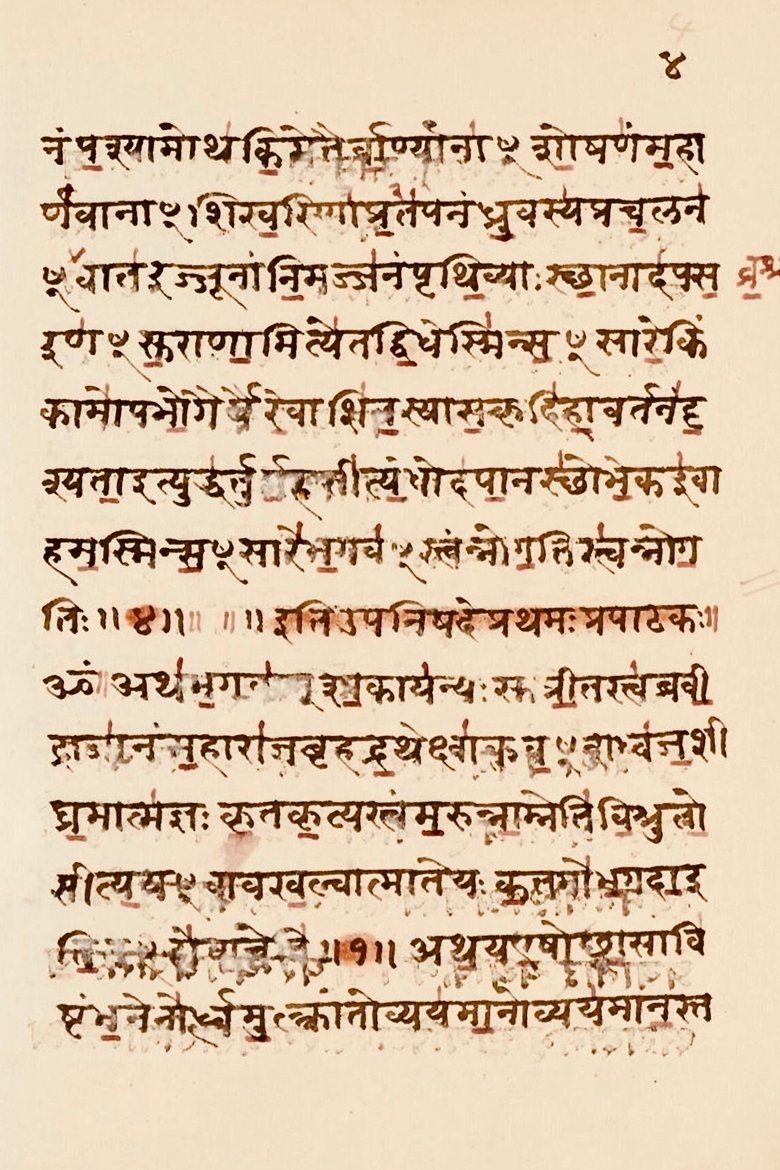 ४
नं पश्यामोथ किमेतैर्वाण्यानाꣳ शोषणं महा
र्णवानाꣳ। शिखरिणां प्रतपनं ध्रुवस्य प्रचलन
ꣳ वातरज्जूनां निमज्जनं पृथिव्याः स्छानादपस
रणꣳ सुराणामित्येतद्विधेस्मिन्सꣳसारे किं
कामोपभोगैर्यैरेवाशितस्यासकृदिहावर्तनं दृ
श्यता इत्युद्धर्तुमर्हसीत्यंधोदपानस्छो भेक इवा
हमस्मिन्सꣳसारे भगवꣳस्त्वं नो गतिस्त्वन्नो ग
तिः ॥ ४ ॥ ॥ इति उपनिषदे प्रथमः प्रपाठकः ॥
ॐ अथ भगवान् शाकायन्यः सुप्रीतस्त्वब्रवी
द्राजानं महाराज बृहद्रथेक्ष्वाकुवꣳशध्वज शी
घ्रमात्मज्ञः कृतकृत्यस्त्वं मरुन्नाम्नेति विश्रुतो
सीत्ययꣳ वाव खल्वात्मा ते यः कतमो भगव इ
॥ १ ॥ अथ य एषो छ्वासावि
ष्टंभनेनोर्ध्वमुत्क्रांतो व्ययमानोव्ययमानस्त